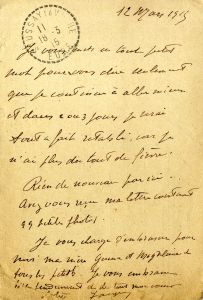 12 Mars 1915
Je vous mets un tout petit
mot pour vous dire seulement
que je continue à aller mieux
et dans                 jours je serai
tout à fait rétabli, car je
n'ai plus du tout de fièvre.
Rien de nouveau par ici
Avez vous reçu ma lettre contenant
photos
Je vous charge d'embrasser pour
moi ma                 et Magdeleine
tous les petits. Je vous embrasse
tendrement de tout mon cœur